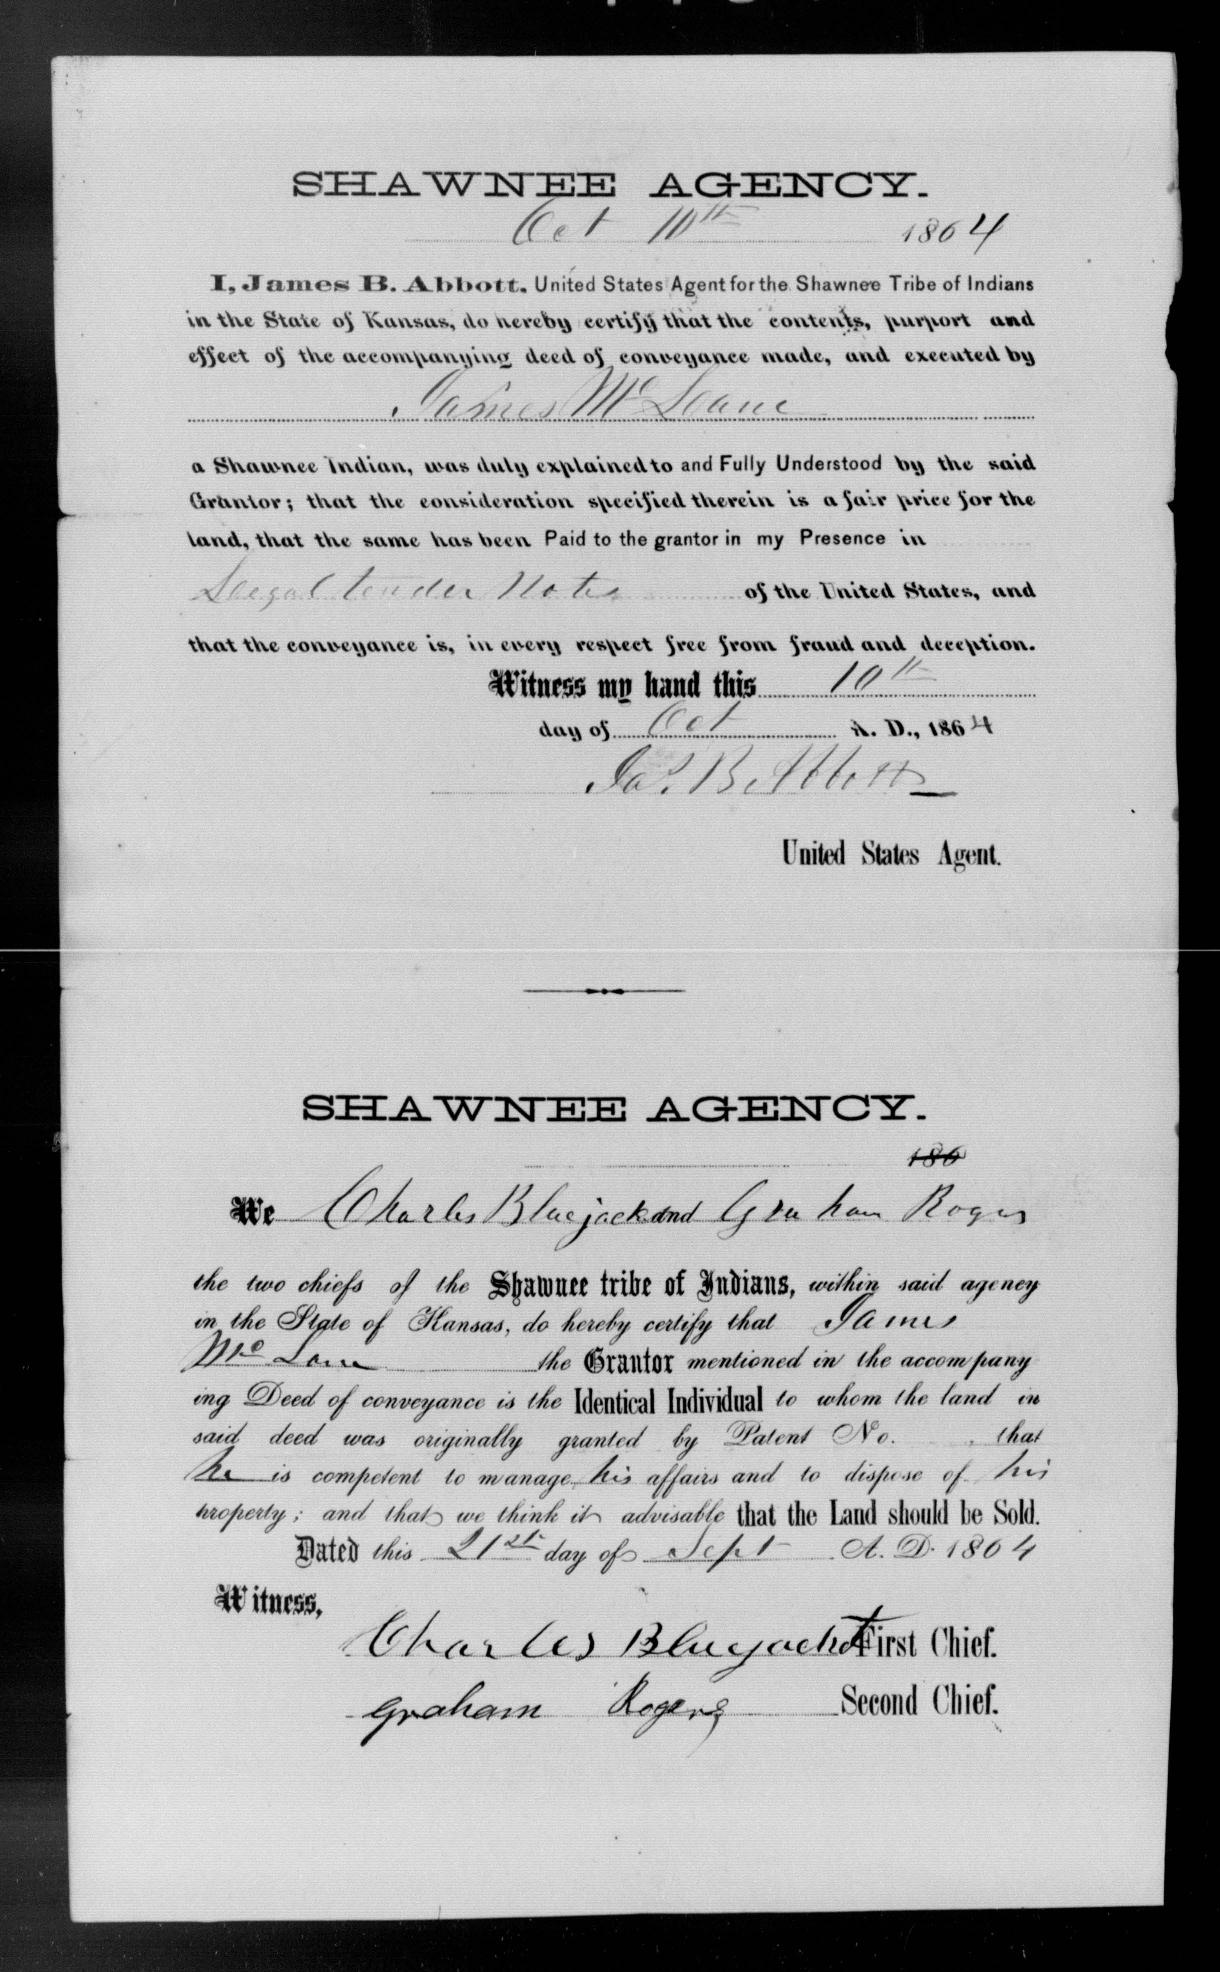 SHAWNEE AGENCY.
Oct 10th 1864
I, James B. Abbott, United States Agent for the Shawnee Tribe of Indians
in the State of Kansas, do hereby certify that the contents, purport and
effect of the accompanying deed of conveyance made, and executed by
James Mc Loane
a Shawnee Indian, was duly explained to and Fully Understood by the said
Grantor; that the consideration specified therein is a fair price for the
land, that the same has been Paid to the grantor in my Presence in
Legal tender Notes of the United States, and
that the conveyance is, in every respect free from fraud and deception.
Witness my hand this 10th
day of Oct A. D., 1864
Jas. B Abbott
United States Agent.
SHAWNEE AGENCY.
186
We Charles Bluejack and Graham Rogers
the two chiefs of the Shawnee tribe of Indians, within said agency
in the State of Kansas, do hereby certify that James
Mc Lane the Grantor mentioned in the accompany
ing Deed of conveyance is the Identical Individual to whom the land in
said deed was originally granted by Patent No. , that
he is competent to manage his affairs and to dispose of his
property; and that we think it advisable that the Land should be Sold.
Dated this 21st day of Sept A. D. 1864
Witness,
Charles Bluejacket First Chief.
Graham Rogers Second Chief.